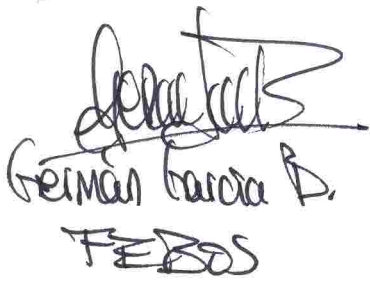 Germán García B.
FEBOS